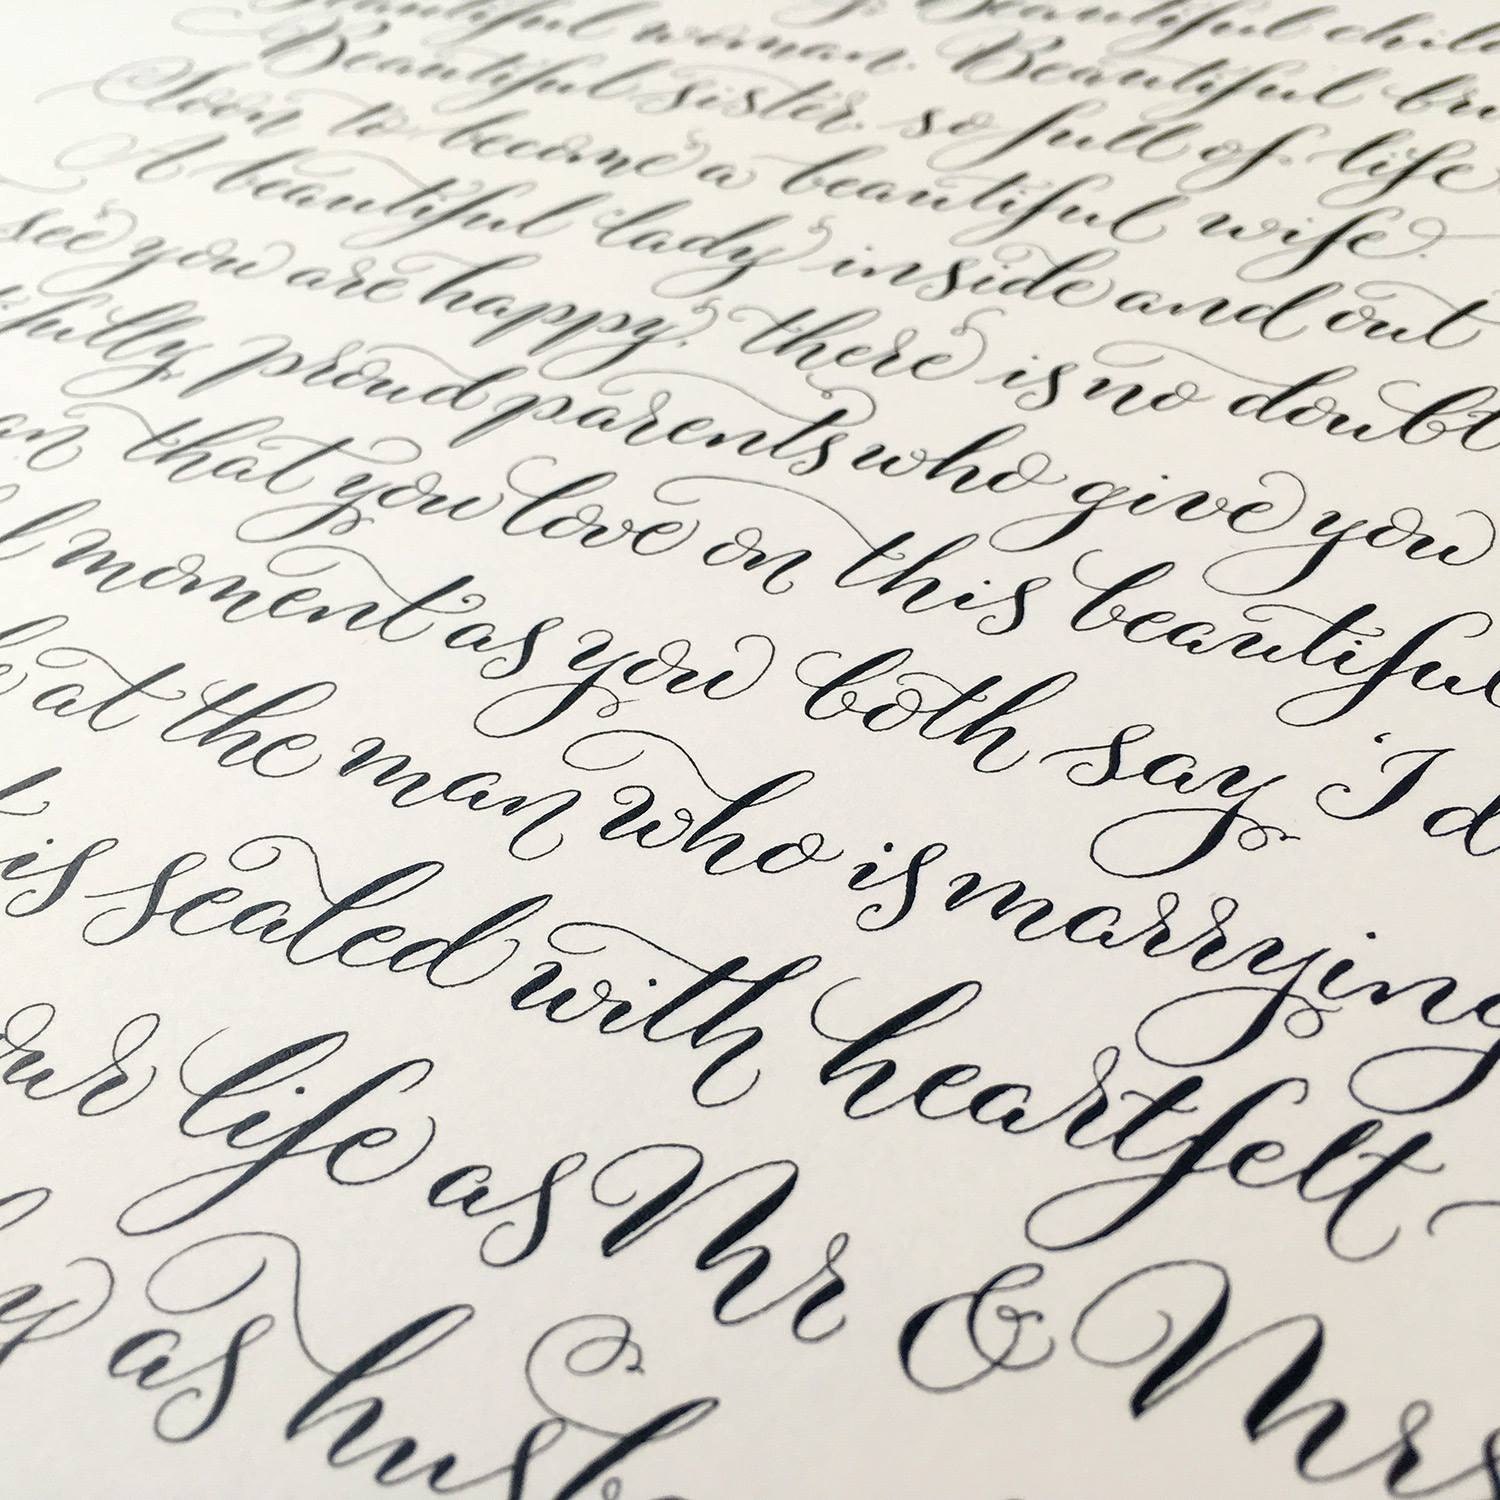 Beautiful chil
Beautiful woman. Beautiful
Beautiful sister, so full of life
Soon to become a beautiful wife.
A beautiful lady inside and out
see you are happy, there is no doubt
ifully proud parents who give you
an that you love on this beautiful
l moment as you both say 'I d
at the man who is marrying
is sealed with heartfelt
our life as Mr & Mrs
y as husb